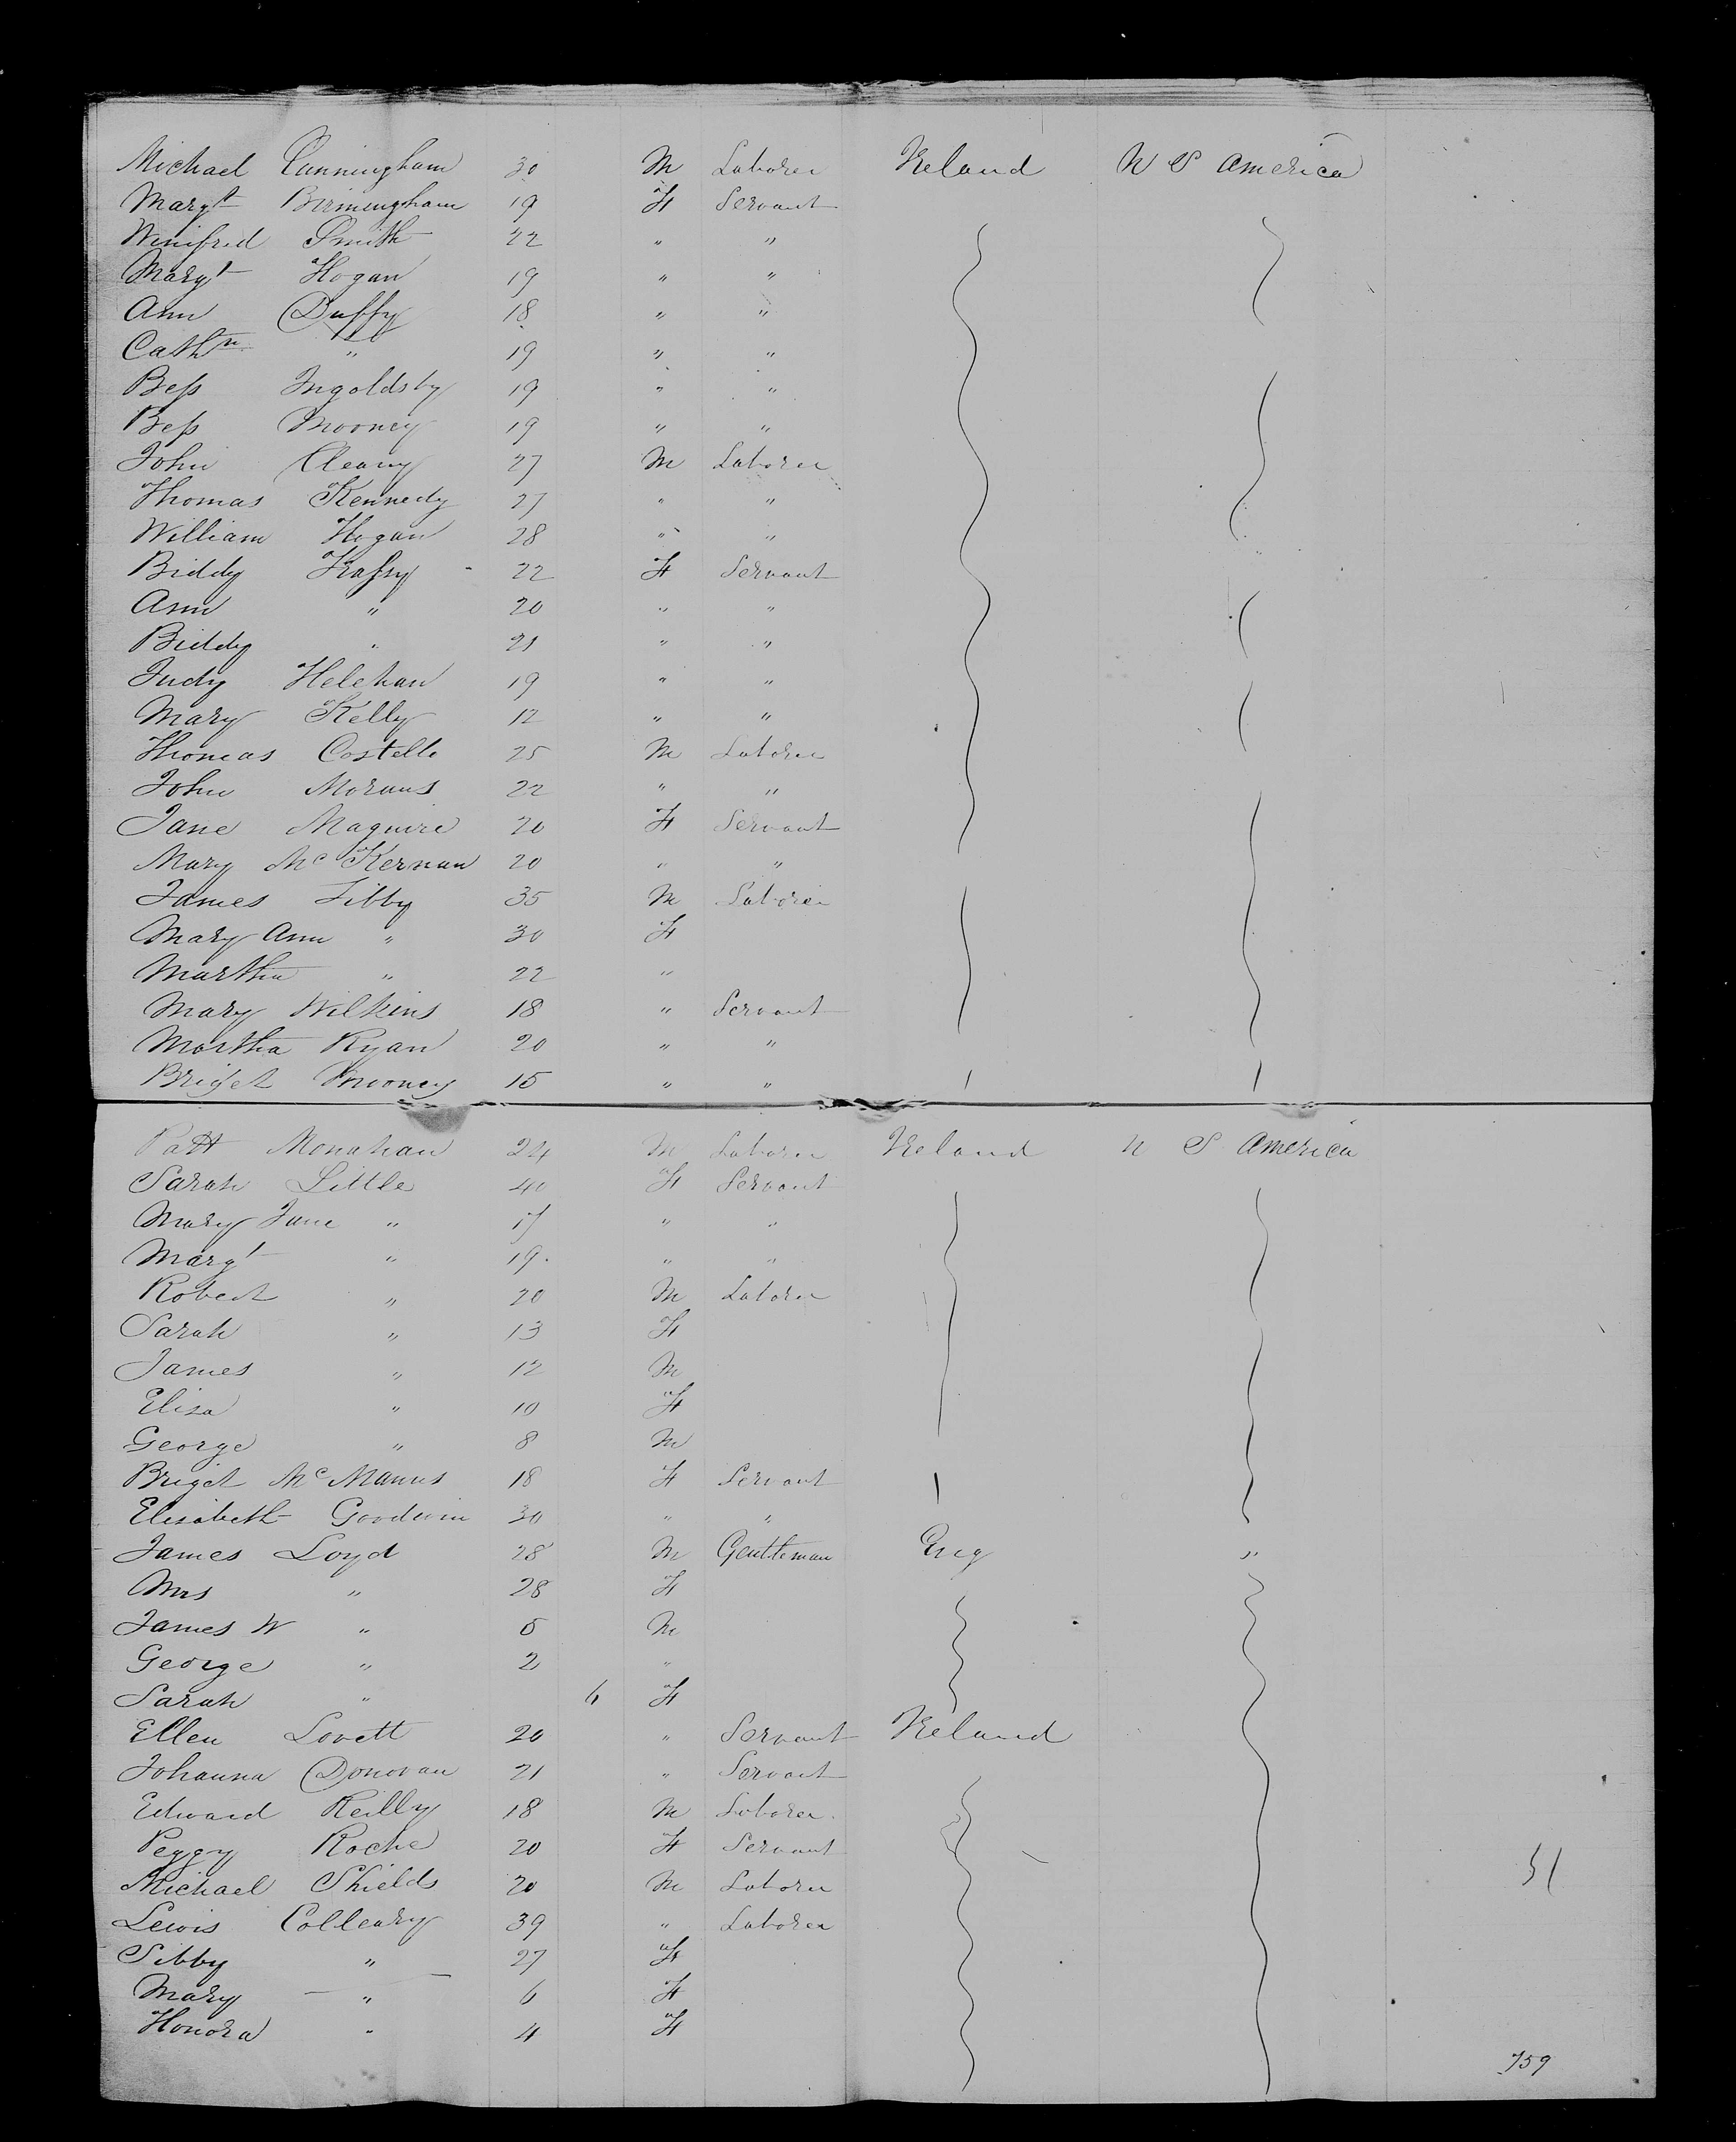 Michael Cunningham 30 M Laborer Ireland U S America
Margt Birmingham 19 F Servant
Winifred Smith 22 " "
Margt Hogan 19 " "
Ann Duffy 18 " "
Cathn " 19 " "
Bess Ingoldsby 19 " "
Bess Mooney 19 " "
John Cleary 27 M Laborer
Thomas Kennedy 27 " "
William Hogan 28 " "
Biddy 22 F Servant
Ann " 20 " "
Biddy " 21 " "
Judy Helehan 19 " "
Mary Kelly 12 " "
Thomas Costello 25 M Laborer
John Morans 22 " "
Jane Maguire 20 F Servant
Mary McKernan 20 " "
James Libby 35 M Laborer
Mary Ann " 30 F
Martha " 22 "
Mary Wilkins 18 " Servant
Martha Ryan 20 " "
Briget Mooney 15 " "
Patt Monahan 24 M Laborer Ireland U S America
Sarah Little 40 F Servant
Mary Jane " 17 " "
Margt " 19 " "
Robert " 20 M Laborer
Sarah " 13 F
James " 12 M
Eliza " 10 F
George " 8 M
Briget McManus 18 F Servant
Elisabeth Goodwin 30 " "
James Loyd 28 M Gentleman Eng "
Mrs " 28 F
James W " 5 M
George " 2 "
Sarah " 6 F
Ellen Lovett 20 " Servant Ireland
Johanna Donovan 21 " Servant
Edward Reilly 18 M Laborer
Peggy Roche 20 F Servant
Michael Shields 20 M Laborer 51
Lewis Colleary 39 " Laborer
Sibby " 27 F
Mary " 6 F
Honora " 4 F
759